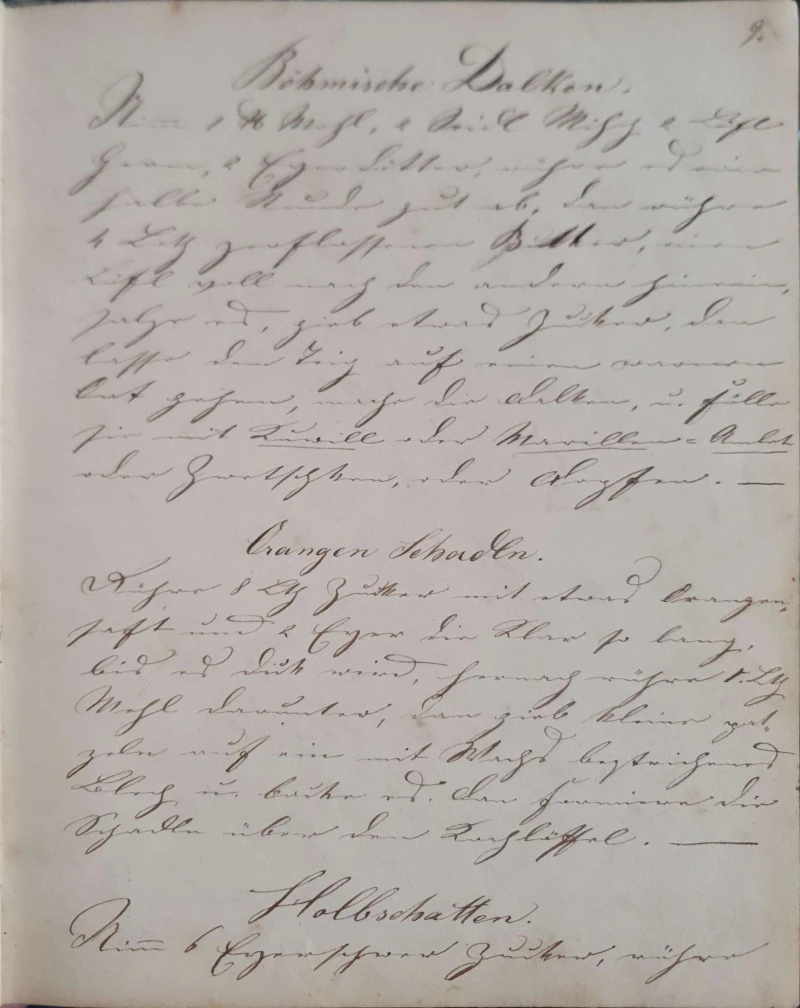 9.
Böhmische Dalken.
Nimm 1 ℔ Mehl, 2 Seidl Milch 2 Löfl
Germ, 2 Eyerdötter, rühre es eine
halbe Stunde gut ab, dan rühre
4 Lth zerflossenen Butter, einen
Löfl voll nach den andern hinein,
salze es, gieb etwas Zucker, dan
lasse den Teig auf einen warmen
Ort gehen, mache die Dalken, u. fülle
sie mit Riwisl oder Marillen=Saltz
oder Zwetschken, oder Äpfeln. —
Orangen Schadln.
Rühre 8 Lth Zucker mit etwas Orangen-
saft und 2 Eyer die Klar so lang,
bis es dick wird, hernach rühre 8. Lth
Mehl darunter, dan gieb kleine pat-
zeln auf ein mit Wachs bestrichenes
Blech, u. backe es. dan formiere die
Schadln über den Kochlöffel. —
Holbschatten.
Nimm 6 Eyerschwer Zucker, rühre